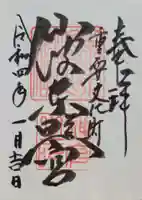 奉拝
重要文化財
仙波東照宮
令和四年 一月吉日